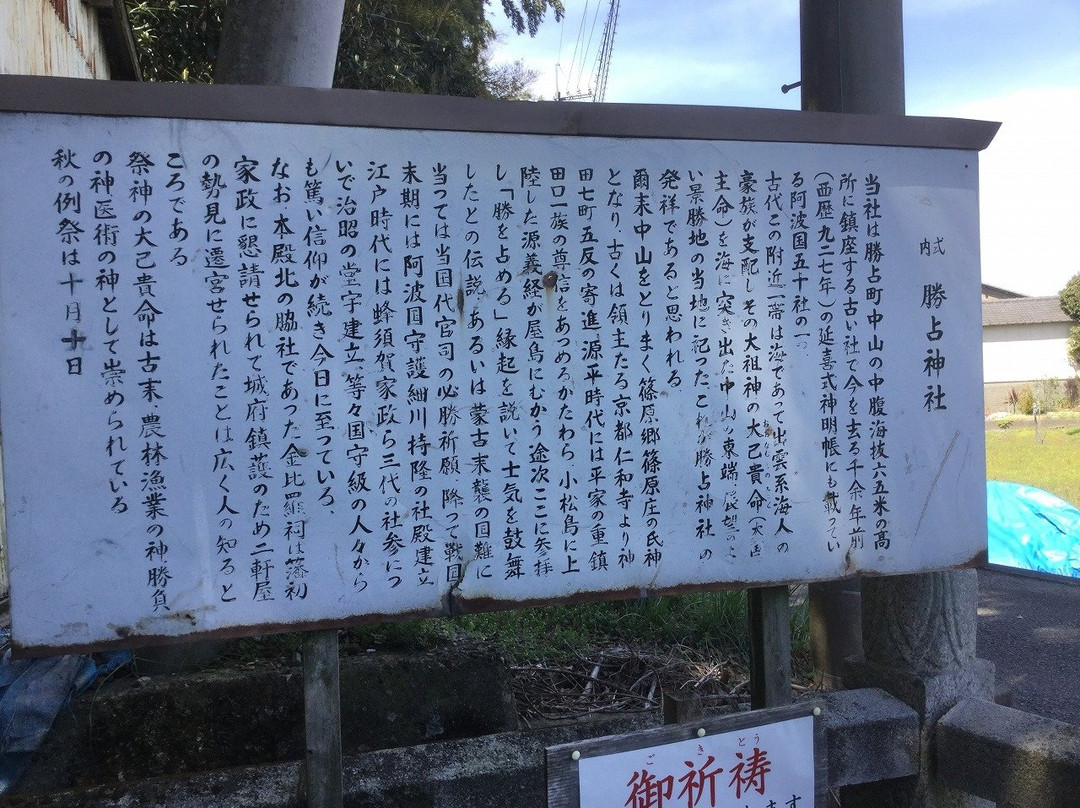 式内 勝占神社
当社は勝占町中山の中腹海抜六五米の高
所に鎮座する古い社で今を去る千余年前
(西歴九二七年)の延喜式神明帳にも載ってい
る阿波国五十社の一つ
古代この附近一帯は海であって出雲系海人の
豪族が支配しその大祖神の大己貴命(大国
主命)を海に突き出た中山の東端展望のよ
い景勝地の当地に祀ったこれが勝占神社の
発祥であると思われる
爾来中山をとりまく篠原郷篠原庄の氏神
となり、古くは領主たる京都仁和寺より神
田七町五反の寄進、源平時代には平家の重鎮
田口一族の尊信をあつめるかたわら、小松島に上
陸した源義経が屋島にむかう途次ここに参拝
し「勝を占める」縁起を説いて士気を鼓舞
したとの伝説、あるいは蒙古来襲の国難に
当っては当国代官司の必勝祈願、降って戦国
末期には阿波国守護細川持隆の社殿建立
江戸時代には蜂須賀家政ら三代の社参につ
いで治昭の堂宇建立、等々国守級の人々から
も篤い信仰が続き今日に至っている、
なお、本殿北の脇社であった金比羅祠は藩初
家政に懇請せられて城府鎮護のため二軒屋
の勢見に遷宮せられたことは広く人の知ると
ころである
祭神の大己貴命は古来農林漁業の神勝負
の神医術の神として崇められている
秋の例祭は十月十日
ごきとう
御祈祷
ます